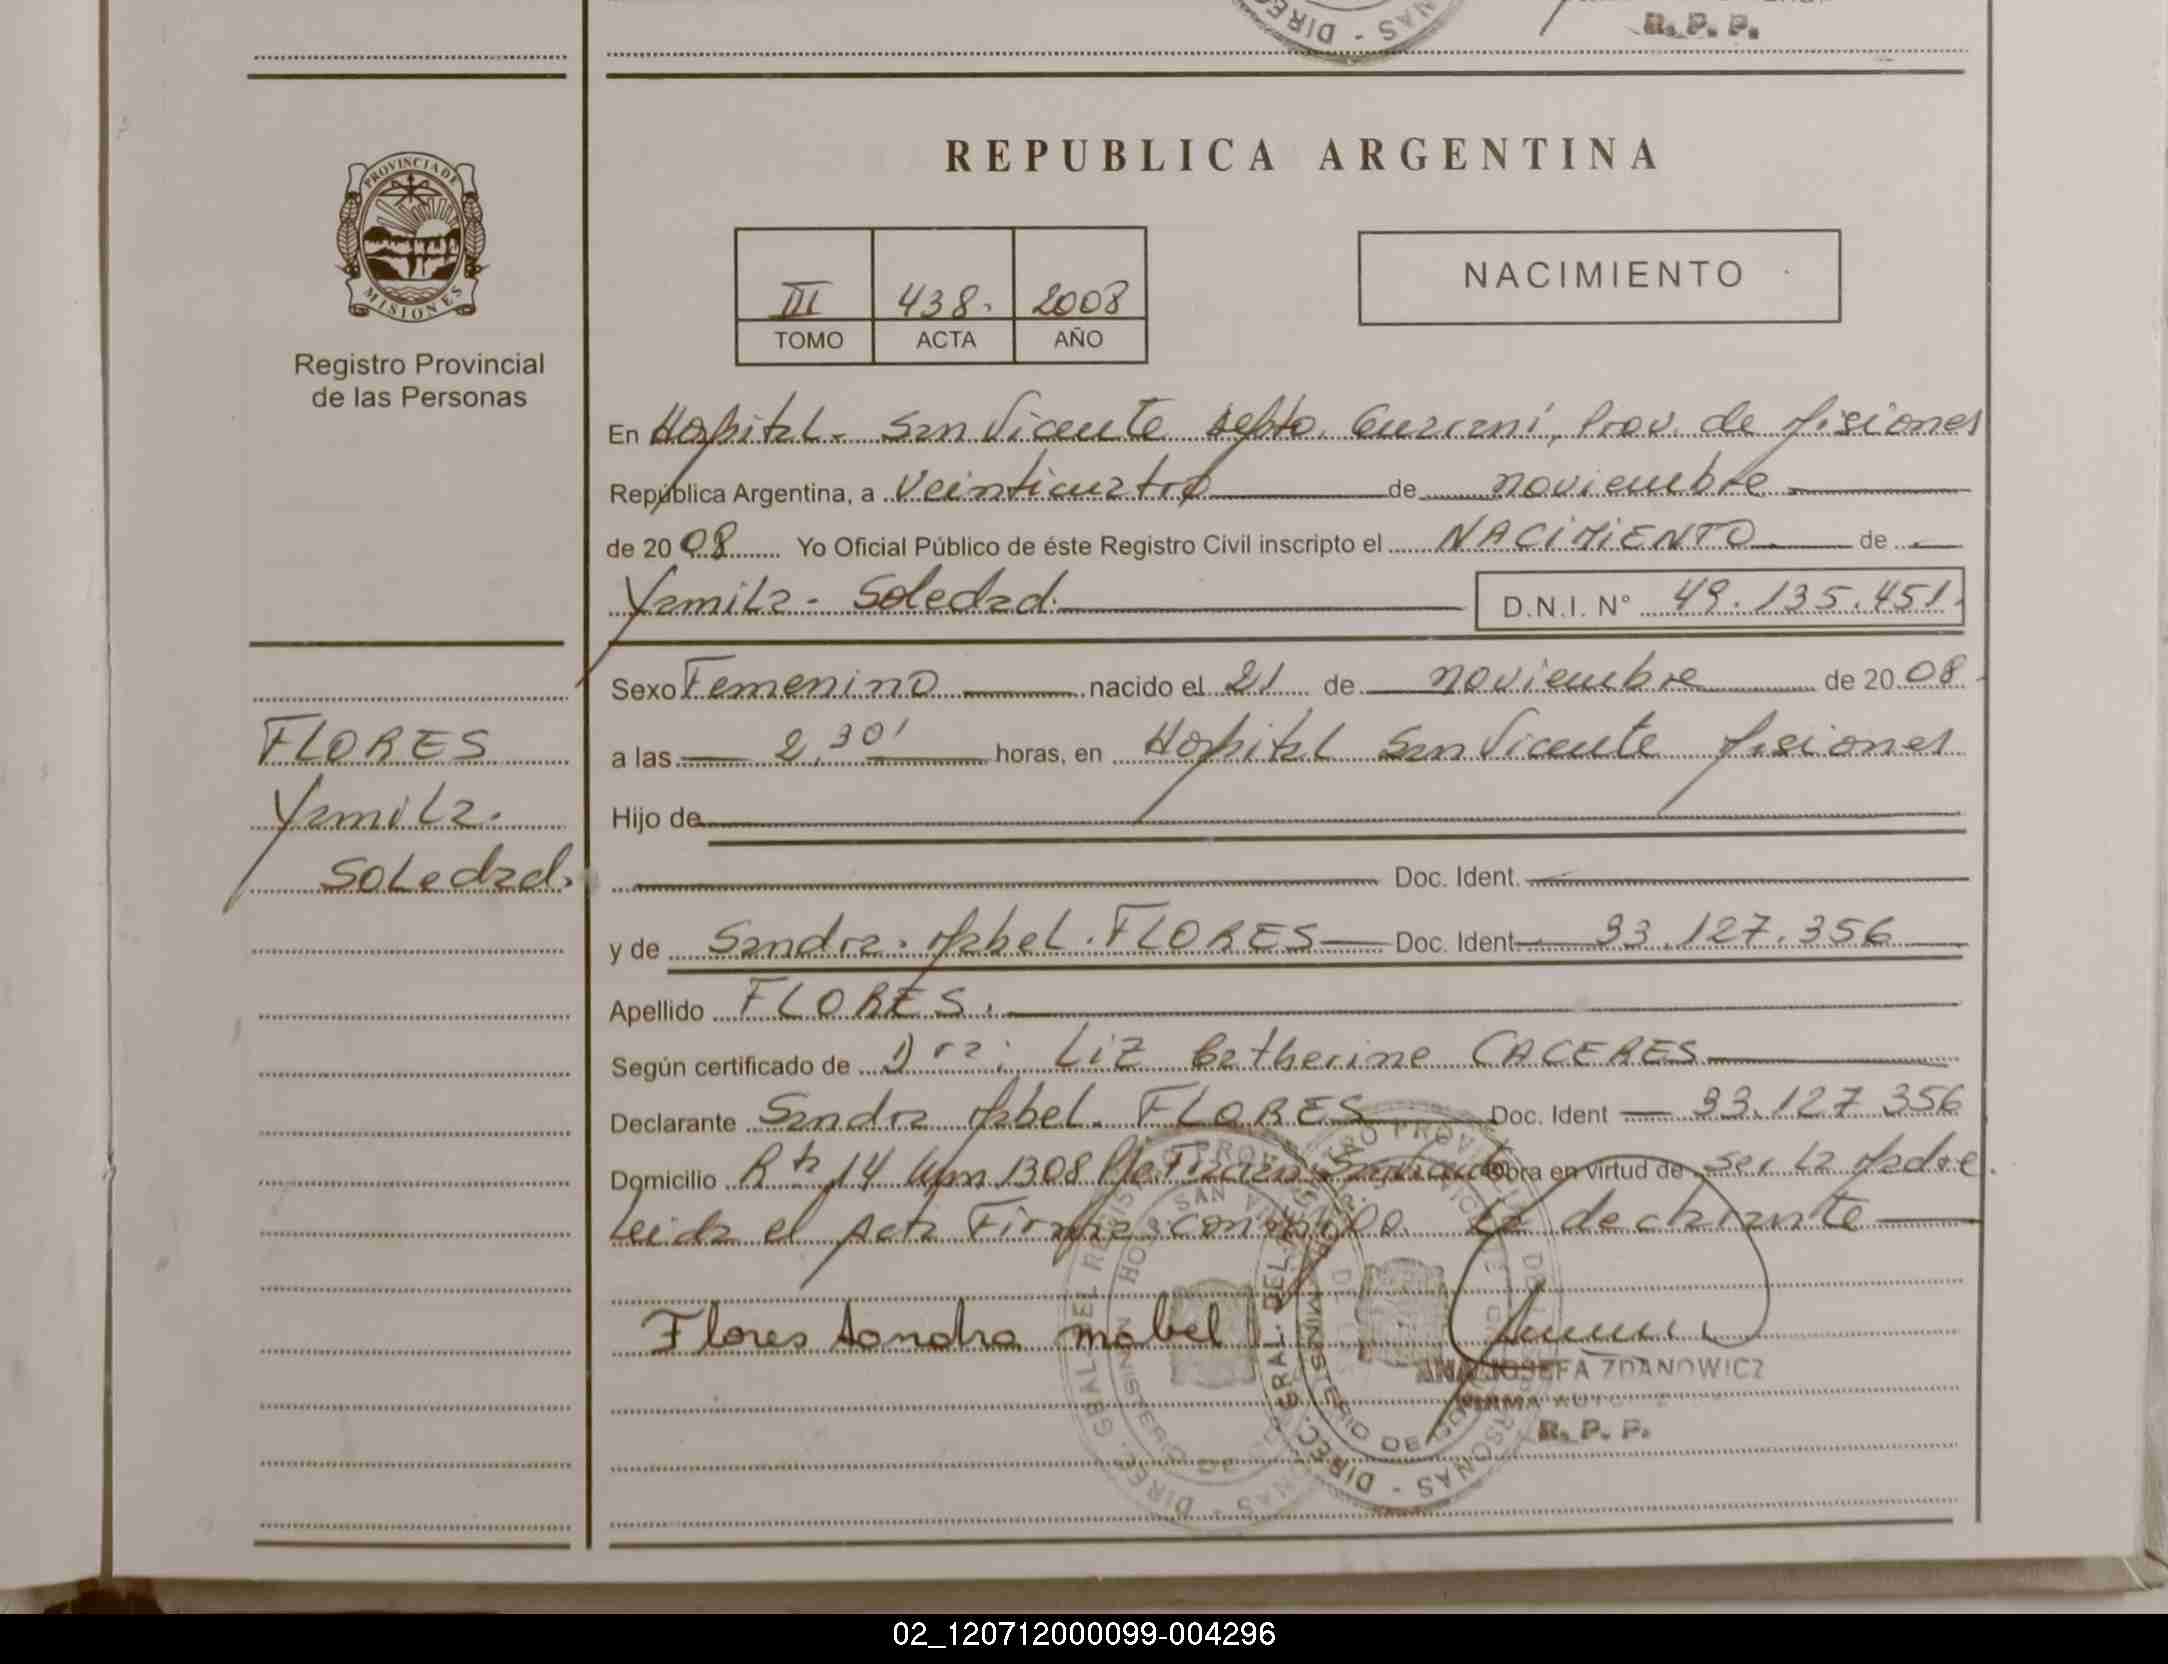 DIREC - NAS
R. P. P.
PROVINCIA DE
MISIONES
Registro Provincial
de las Personas
FLORES
Yamila.
Soledad.
REPUBLICA ARGENTINA
III 438. 2008
TOMO ACTA AÑO
NACIMIENTO
En Hospital - San Vicente depto. Guaraní, Prov. de Misiones
República Argentina, a veinticuatro de noviembre
de 2008 Yo Oficial Público de éste Registro Civil inscripto el NACIMIENTO de
Yamila - Soledad. D.N.I. N° 49.135.451.
Sexo Femenino nacido el 21 de noviembre de 2008
a las 2,30' horas, en Hospital San Vicente Misiones
Hijo de
Doc. Ident.
y de Sandra. Mabel. FLORES Doc. Ident 33.127.356
Apellido FLORES.
Según certificado de Dra: Liz Catherine CACERES
Declarante Sandra Mabel. FLORES Doc. Ident 33.127 356
Domicilio Rta 14 km 1308 Obra en virtud de ser la Madre.
Leida el Acta Firma conmigo la declarante
Flores Sandra mabel
ANA JOSEFA ZDANOWICZ
FIRMA
R. P. P.
02_120712000099-004296